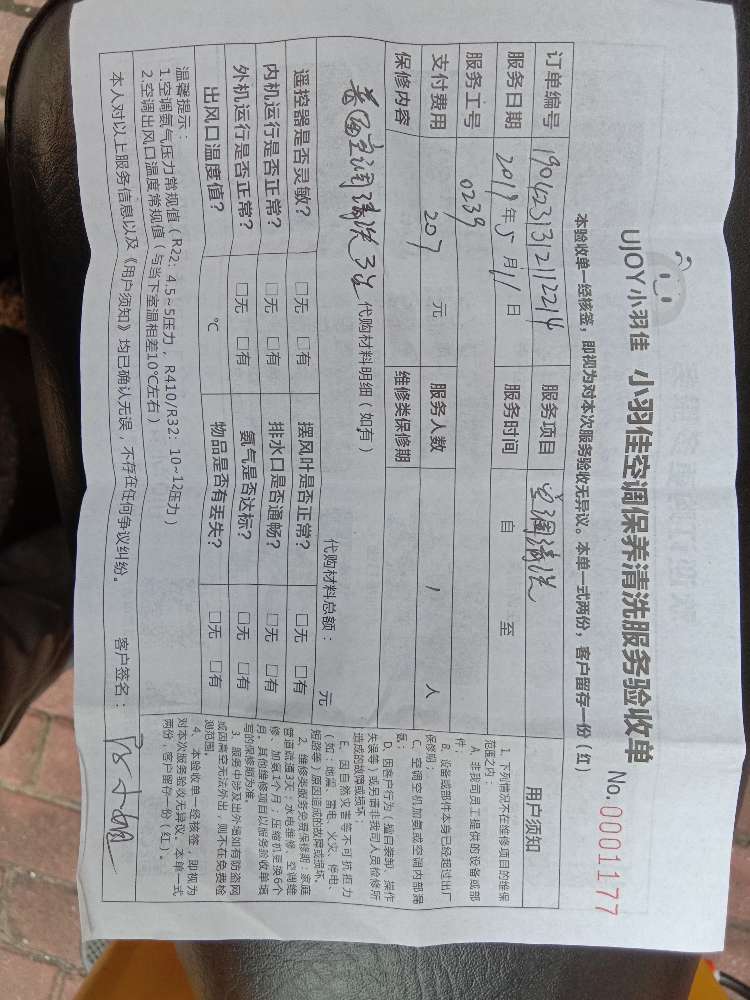 UJOY小羽佳 小羽佳空调保养清洗服务验收单
No.0001177
本验收单一经核签，即视为对本次服务验收无异议。本单一式两份，客户留存一份（红）
订单编号 1904231312112214 服务项目 空调清洗
服务日期 2019年5月11日 服务时间 自 至
服务工号 0239
支付费用 207 元 服务人数 1 人
保修内容 维修类保修期
空调清洗3台
代购材料明细（如有） 代购材料总额： 元
遥控器是否灵敏？ □无 □有 摆风叶是否正常？ □无 □有
内机运行是否正常？ □无 □有 排水口是否通畅？ □无 □有
外机运行是否正常？ □无 □有 氨气是否达标？ □无 □有
出风口温度值？ ℃ 物品是否有丢失？ □无 □有
温馨提示：
1.空调氨气压力常规值（R22：4.5~5压力，R410/R32：10~12压力）
2.空调出风口温度常规值（与当下室温相差10℃左右）
本人对以上服务信息以及《用户须知》均已确认无误，不存在任何争议纠纷。 客户签名：
用户须知
1、下列情况不在维修项目的维保
范围之内：
A、非我司员工提供的设备或部
件；
B、设备或部件本身已经超过出厂
保修期；
C、空调空机加氨或空调内部漏
氨；
D、因客户行为（擅自装卸、操作
失误等）或另请非我司人员检修所
造成的故障或损坏；
E、因自然灾害等不可抗拒力
（如：地震、雷电、火灾、停电、
短路等）原因造成的故障或损坏。
2、维修类服务免费保修期：家庭
管道疏通3天；水电维修、空调维
修、加氨1个月；压缩机更换6个
月。其他维修项目以服务验收单填
写的保修期为准。
3、服务中涉及出外墙如有防盗网
或因高空无法外出，则不在免费检
测范围。
4、本验收单一经核签，即视为
对本次服务验收无异议。本单一式
两份，客户留存一份（红）。